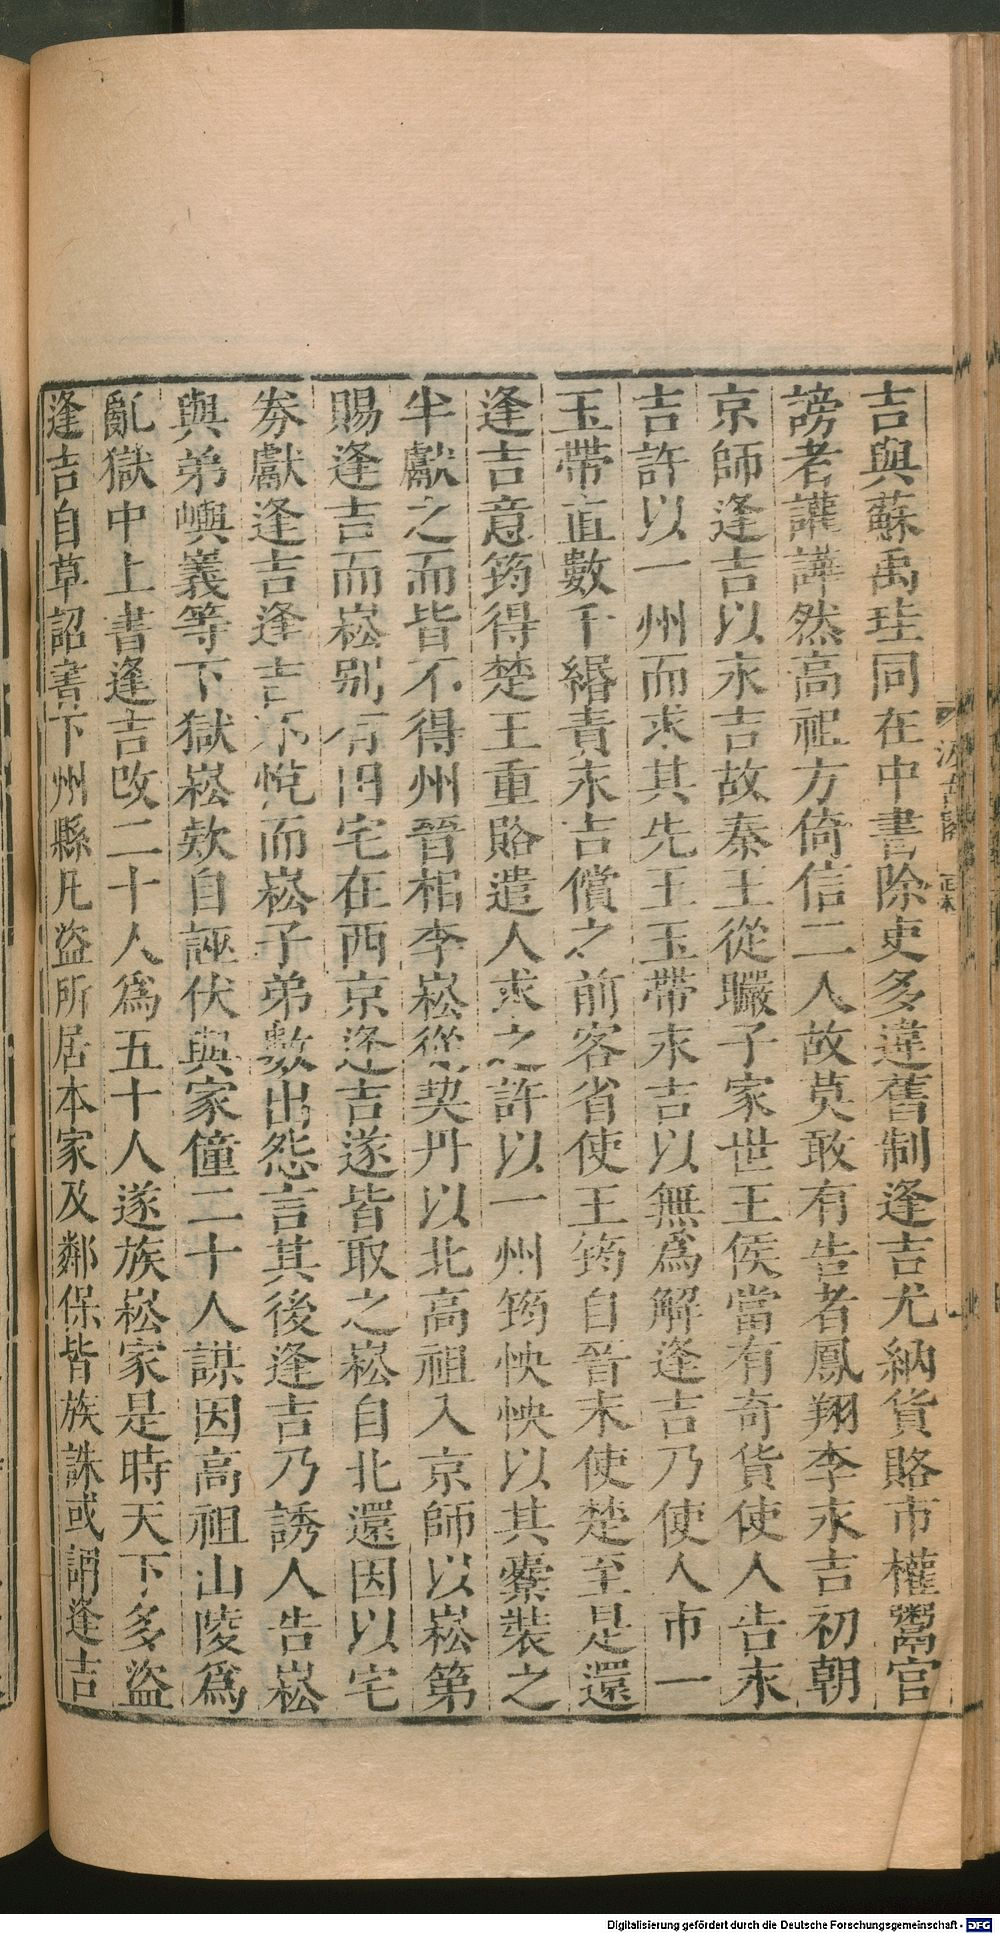 吉與蘇禹珪同在中書除吏多違舊制逢吉尤納貨賂市權鬻官
謗者讙譁然高祖方倚信二人故莫敢有告者鳳翔李永吉初朝
京師逢吉以永吉故秦王從曮子家世王侯當有奇貨使人告永
吉許以一州而求其先王玉帶永吉以無爲解逢吉乃使人市一
玉帶直數千緡責永吉償之前客省使王筠自晉末使楚至是還
逢吉意筠得楚王重賂遣人求之許以一州筠怏怏以其橐裝之
半獻之而皆不得州晉相李崧從契丹以北高祖入京師以崧第
賜逢吉而崧别有田宅在西京逢吉遂皆取之崧自北還因以宅
券獻逢吉逢吉不悅而崧子弟數出怨言其後逢吉乃誘人告崧
與弟嶼義等下獄崧欵自誣伏與家僮二十人謀因高祖山陵爲
亂獄中上書逢吉改二十人爲五十人遂族崧家是時天下多盜
逢吉自草詔書下州縣凡盜所居本家及鄰保皆族誅或謂逢吉
汲古閣
正本
Digitalisierung gefördert durch die Deutsche Forschungsgemeinschaft - DFG